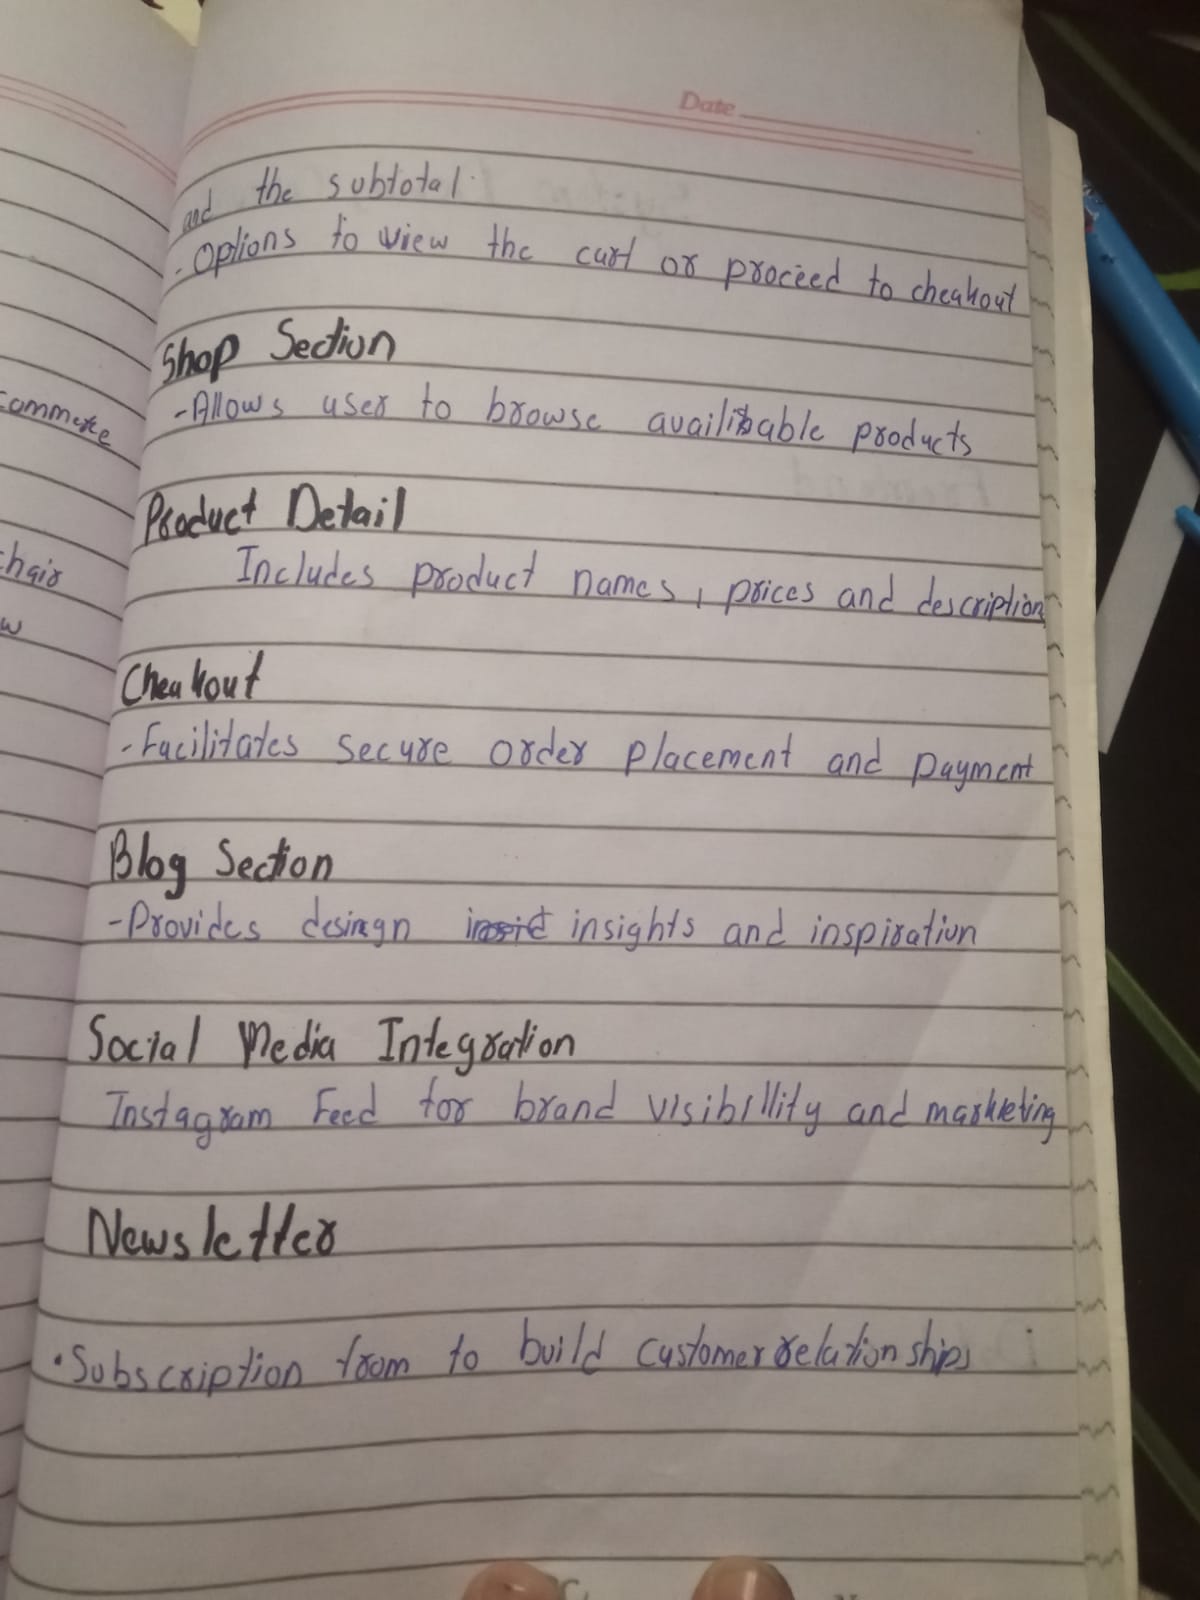 Date
and the subtotal.
- Options to view the cart or proceed to cheakout
Shop Section
- Allows user to browse availibable products
Product Detail
Includes product names, prices and description
Cheakout
- Facilitates secure order placement and payment
Blog Section
- Provides desingn insights and inspiration
Social Media Integration
Instagram Feed for brand visibillity and marketing
Newsletter
• Subscription from to build customer relationships
commerce
chair
w